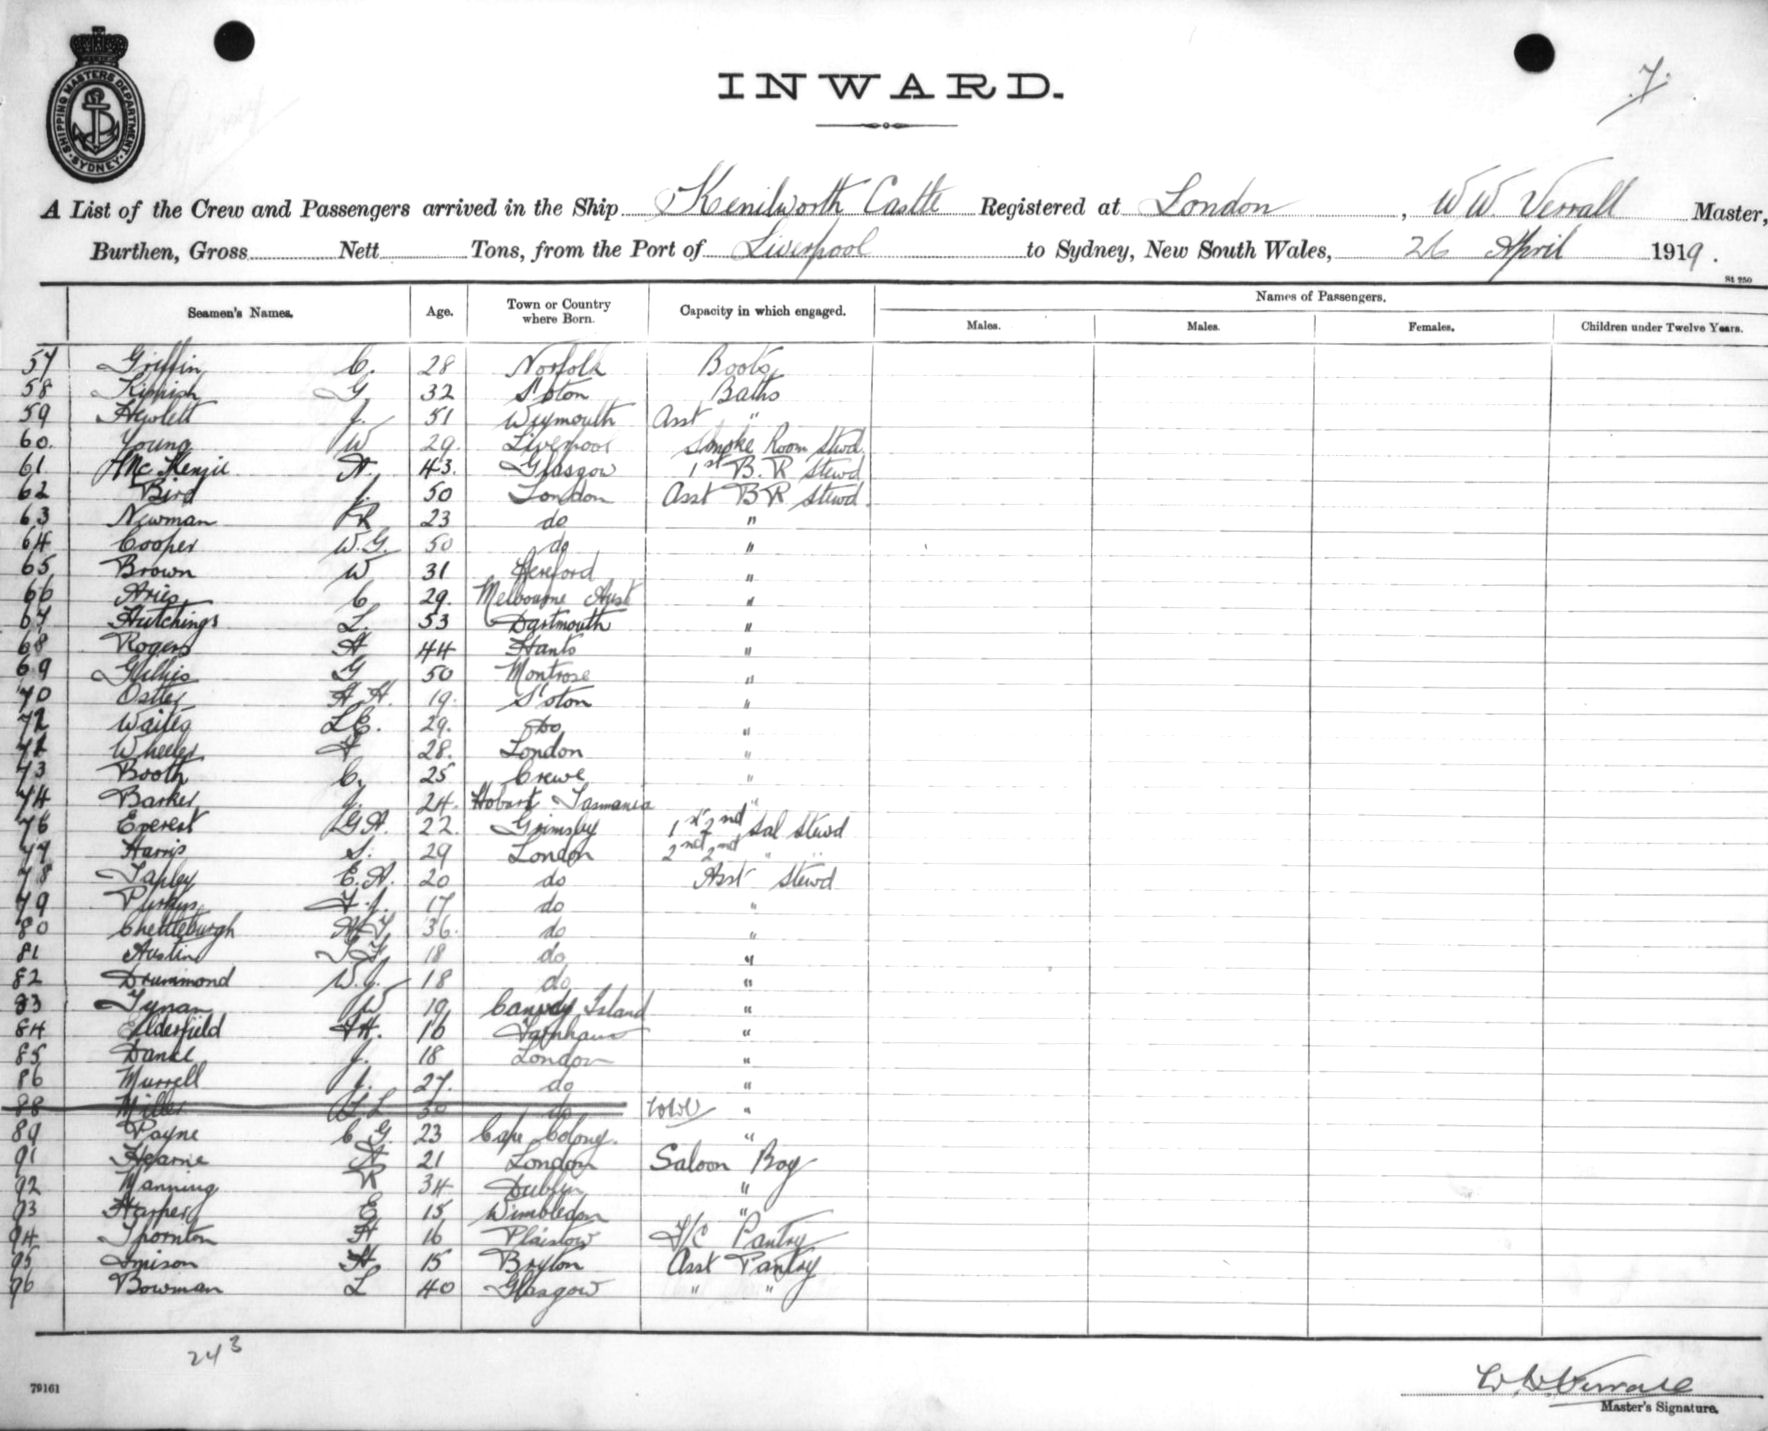 SHIPPING MASTERS DEPARTMENT · SYDNEY ·
INWARD.
7.
A List of the Crew and Passengers arrived in the Ship Kenilworth Castle Registered at London, WW Verrall Master,
Burthen, Gross Nett Tons, from the Port of Liverpool to Sydney, New South Wales, 26 April 1919.
St 250
Seamen's Names. Age. Town or Country where Born. Capacity in which engaged. Names of Passengers.
Males. Males. Females. Children under Twelve Years.
57 Griffin C. 28 Norfolk Boots
58 Kimish G 32 S'oton Baths
59 Hewlett J. 51 Weymouth Asst "
60. Young W 29. Liverpool Smoke Room Stwd
61 McKenzie A. 43. Glasgow 1st B.R Stewd
62 Bird J. 50 London Asst BR Stewd.
63 Newman R 23 do "
64 Cooper W.G. 50 do "
65 Brown W 31 Hereford "
66 Aries C 29. Melbourne Aust "
67 Hutchings L. 53 Dartmouth "
68 Rogers A 44 Hants "
69 Gillies G 50 Montrose "
70 Ostler A.H. 19. S'oton "
72 Waites L.E. 29. Do "
Wheeler F 28. London "
73 Booth C. 25 Crewe "
74 Barker J. 24. Hobart Tasmania "
76 Everest G.A. 22. Grimsby 1st 2nd Sal Stewd
77 Harris S. 29 London 2nd 2nd " "
78 Tapley E.A. 20 do Asst Stewd
79 Perkins F.J. 17 do "
80 Chettleburgh 36. do "
81 Austin 18 do "
82 Drummond W.J. 18 do "
83 Tynan W 19 Canvey Island "
84 Elderfield F.H. 16 Farnham "
85 Danke J. 18 London "
86 Murrell J. 27. do "
88 Miller 30 do WWV "
89 Payne C G. 23 Cape Colony. "
91 Hearne A 21 London Saloon Boy
92 Manning R 34 Dublin "
93 Harper E 15 Wimbledon "
94 Thornton H 16 Plaistow I/C Pantry
95 Smison H 15 Brixton Asst Pantry
96 Bowman L 40 Glasgow " "
243
79161
W.W. Verrall
Master's Signature.